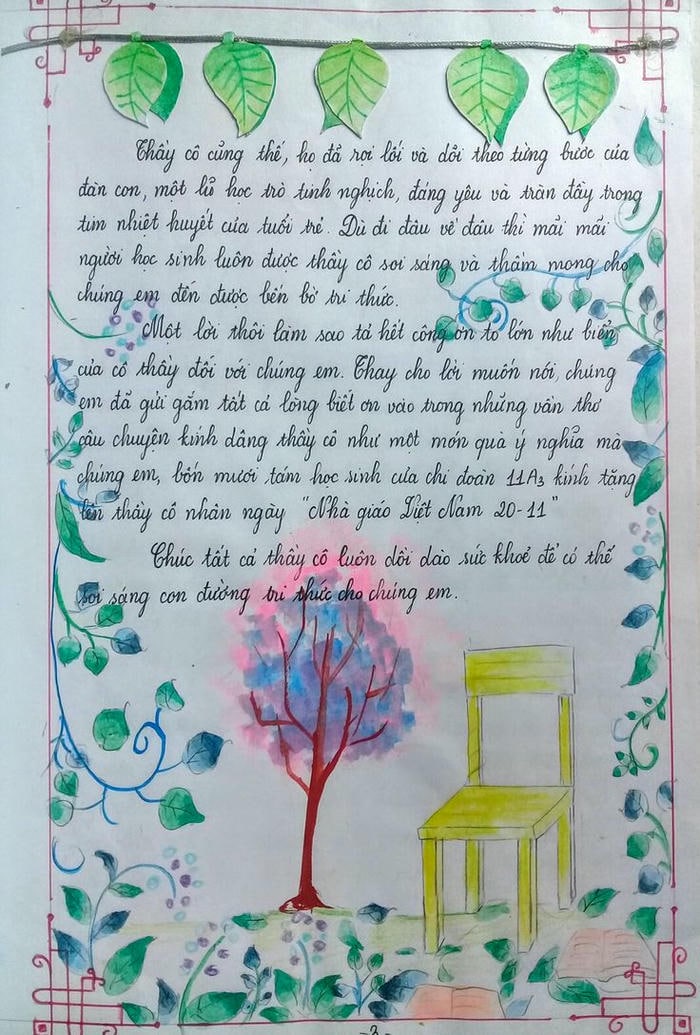 Thầy cô cũng thế, họ đã rọi lối và dõi theo từng bước của
đàn con, một lũ học trò tinh nghịch, đáng yêu và tràn đầy trong
tim nhiệt huyết của tuổi trẻ. Dù đi đâu về đâu thì mãi mãi
người học sinh luôn được thầy cô soi sáng và thầm mong cho
chúng em đến được bến bờ tri thức.
Một lời thôi làm sao tả hết công ơn to lớn như biển
của cô thầy đối với chúng em. Thay cho lời muốn nói, chúng
em đã gửi gắm tất cả lòng biết ơn vào trong những vần thơ
câu chuyện kính dâng thầy cô như một món quà ý nghĩa mà
chúng em, bốn mươi tám học sinh của chi đoàn 11A3 kính tặng
lên thầy cô nhân ngày "Nhà giáo Việt Nam 20-11"
Chúc tất cả thầy cô luôn dồi dào sức khoẻ để có thể
soi sáng con đường tri thức cho chúng em.